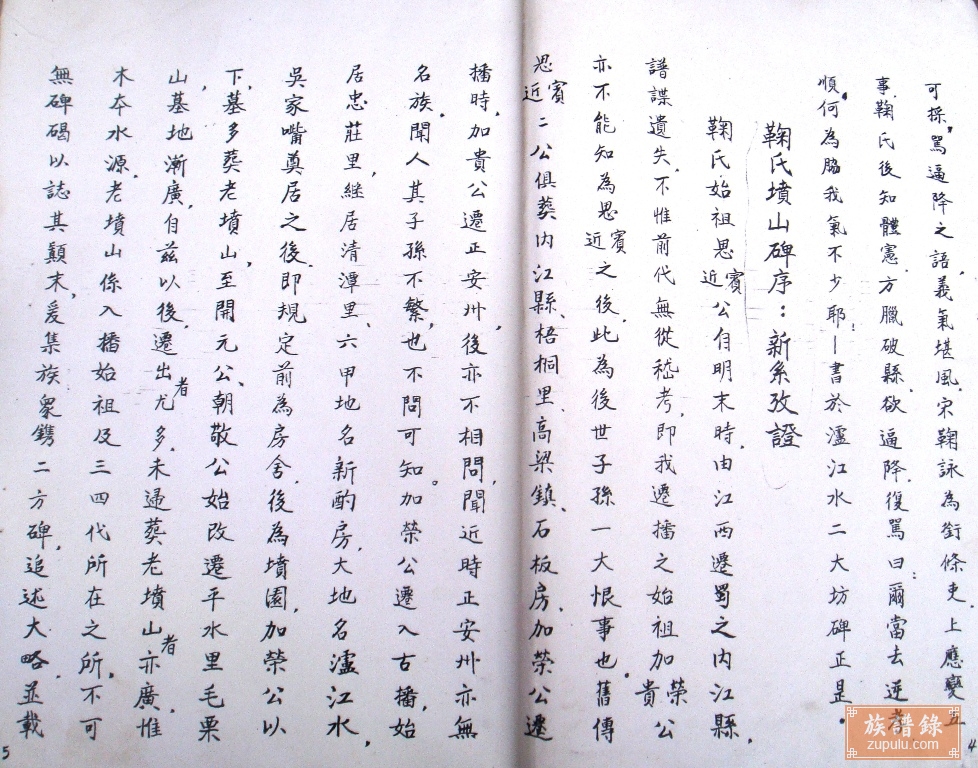 可採,罵逼降之語,義氣堪風,宋鞠詠為銜條吏,上應變五
事,鞠氏後知體憲,方臘破縣,欲逼降,復罵曰:爾當去逆
順,何為脇我氣不少耶!—書於瀘江水二大坊碑正是。
鞠氏墳山碑序:新系攷證
鞠氏始祖思賓近公自明末時,由江西遷蜀之内江縣,
譜諜遺失,不惟前代無從嵇考,即我遷播之始祖加榮貴公
亦不能知為思賓近之後,此為後世子孫一大恨事也。舊傳
思賓近二公俱葬内江縣、梧桐里、高梁鎮、石板房、加榮公遷
播時,加貴公遷正安州,後亦不相問,聞近時正安州亦無
名族,聞人其子孫不繁,也不問可知。加榮公遷入古播,始
居忠莊里,継居清潭里、六甲地名新酌房,大地名瀘江水,
吳家嘴奠居之後,即規定前為房舍,後為墳園,加榮公以
下,墓多葬老墳山,至開元公、朝敬公始改遷平水里毛栗
山,墓地漸廣,自茲以後,遷出者尤多,未歸葬老墳山者亦廣,惟
木本水源,老墳山係入播始祖及三四代所在之所,不可
無碑碣以誌其顛末,爰集族衆鐫二方碑,追述大略,並載
5
4
族譜錄
zupulu.com